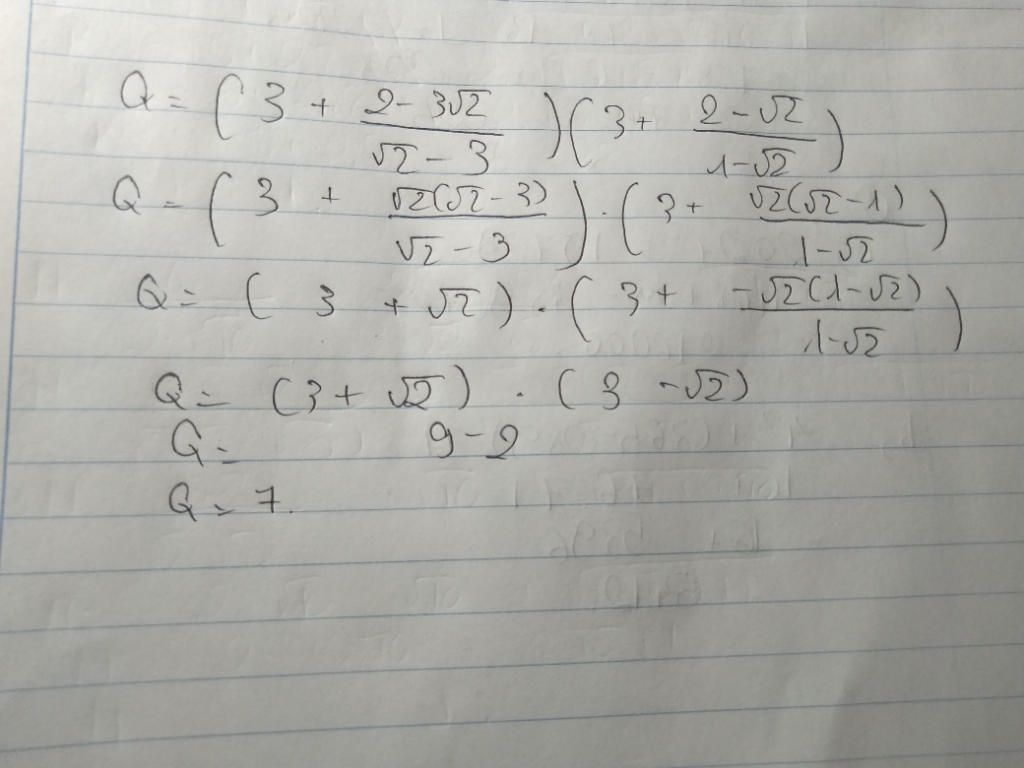 Q = ( 3 + (2 - 3√2)/(√2 - 3) ) ( 3 + (2 - √2)/(1 - √2) )
Q = ( 3 + √2(√2 - 3)/(√2 - 3) ) . ( 3 + √2(√2 - 1)/(1 - √2) )
Q = ( 3 + √2 ) . ( 3 + -√2(1 - √2)/(1 - √2) )
Q = (3 + √2) . (3 - √2)
Q = 9 - 2
Q = 7.